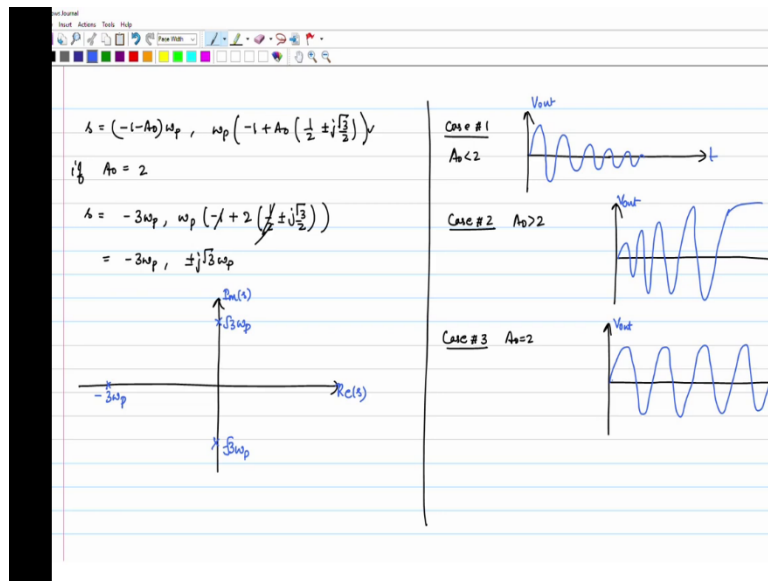 Insert Actions Tools Help
Page Width
s = (-1-A₀)ωₚ , ωₚ(-1 + A₀(1/2 ± j√3/2))
if A₀ = 2
s = -3ωₚ , ωₚ(-1 + 2(1/2 ± j√3/2))
= -3ωₚ , ±j√3ωₚ
Im(s)
√3ωₚ
-3ωₚ
Re(s)
√3ωₚ
Case #1
A₀<2
Vout
t
Case #2 A₀>2
Vout
Case #3 A₀=2
Vout